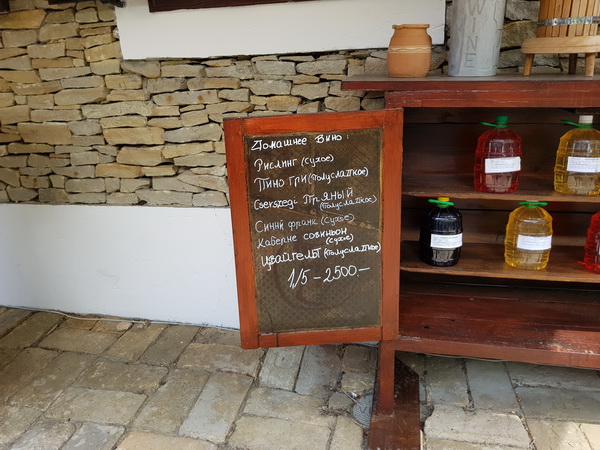 WINE
Домашнее вино:
Рислинг (сухое)
Пино гри (полусладкое)
Cserszegi Пряный
(полусладкое)
Синий франк (сухое)
Каберне совиньон
(сухое)
Цвайгельт (полусладкое)
1/5 - 2500,-